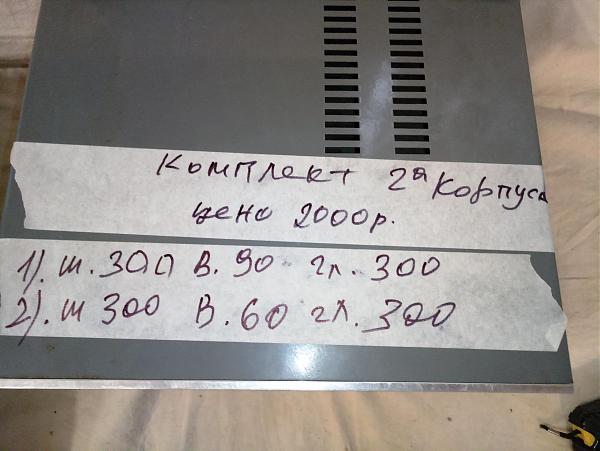 Комплект 2а корпуса
цена 2000р.
1). ш. 300 в. 90 гл. 300
2). ш 300 в. 60 гл. 300